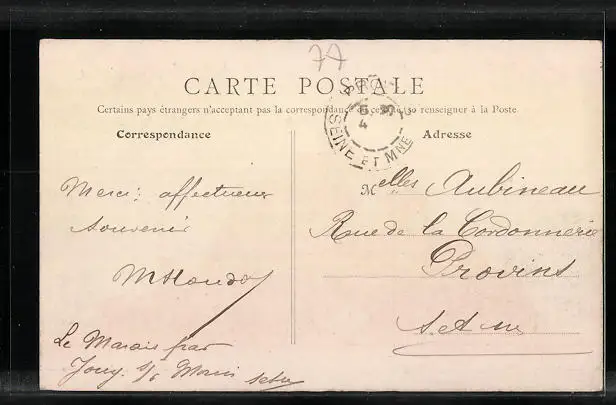 77
CARTE POSTALE
Certains pays étrangers n'acceptant pas la correspondance au recto, se renseigner à la Poste
Correspondance
Adresse
SEINE ET MNE
4
Merci: affectueux
souvenir
Melles Aubineau
Rue de la Cordonnerie
Provins
S. et M
Le Marais par
Jouy s/s Morin